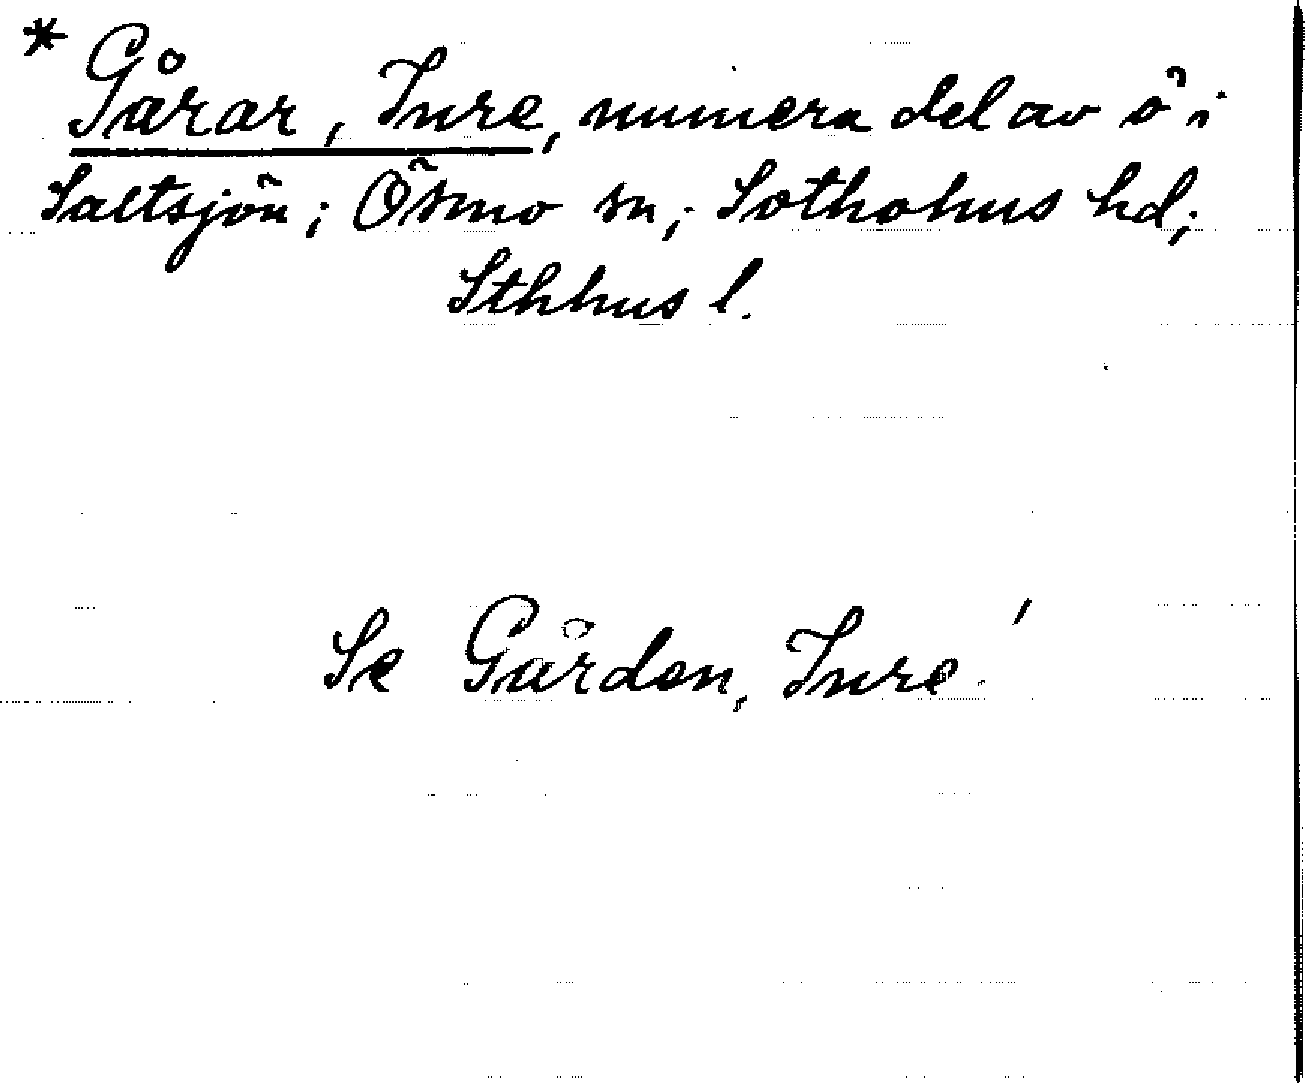 * Gårar, Inre, numera del av ö i
Saltsjön; Ösmo sn; Sotholms hd;
Sthlms l.
Se Gården, Inre!